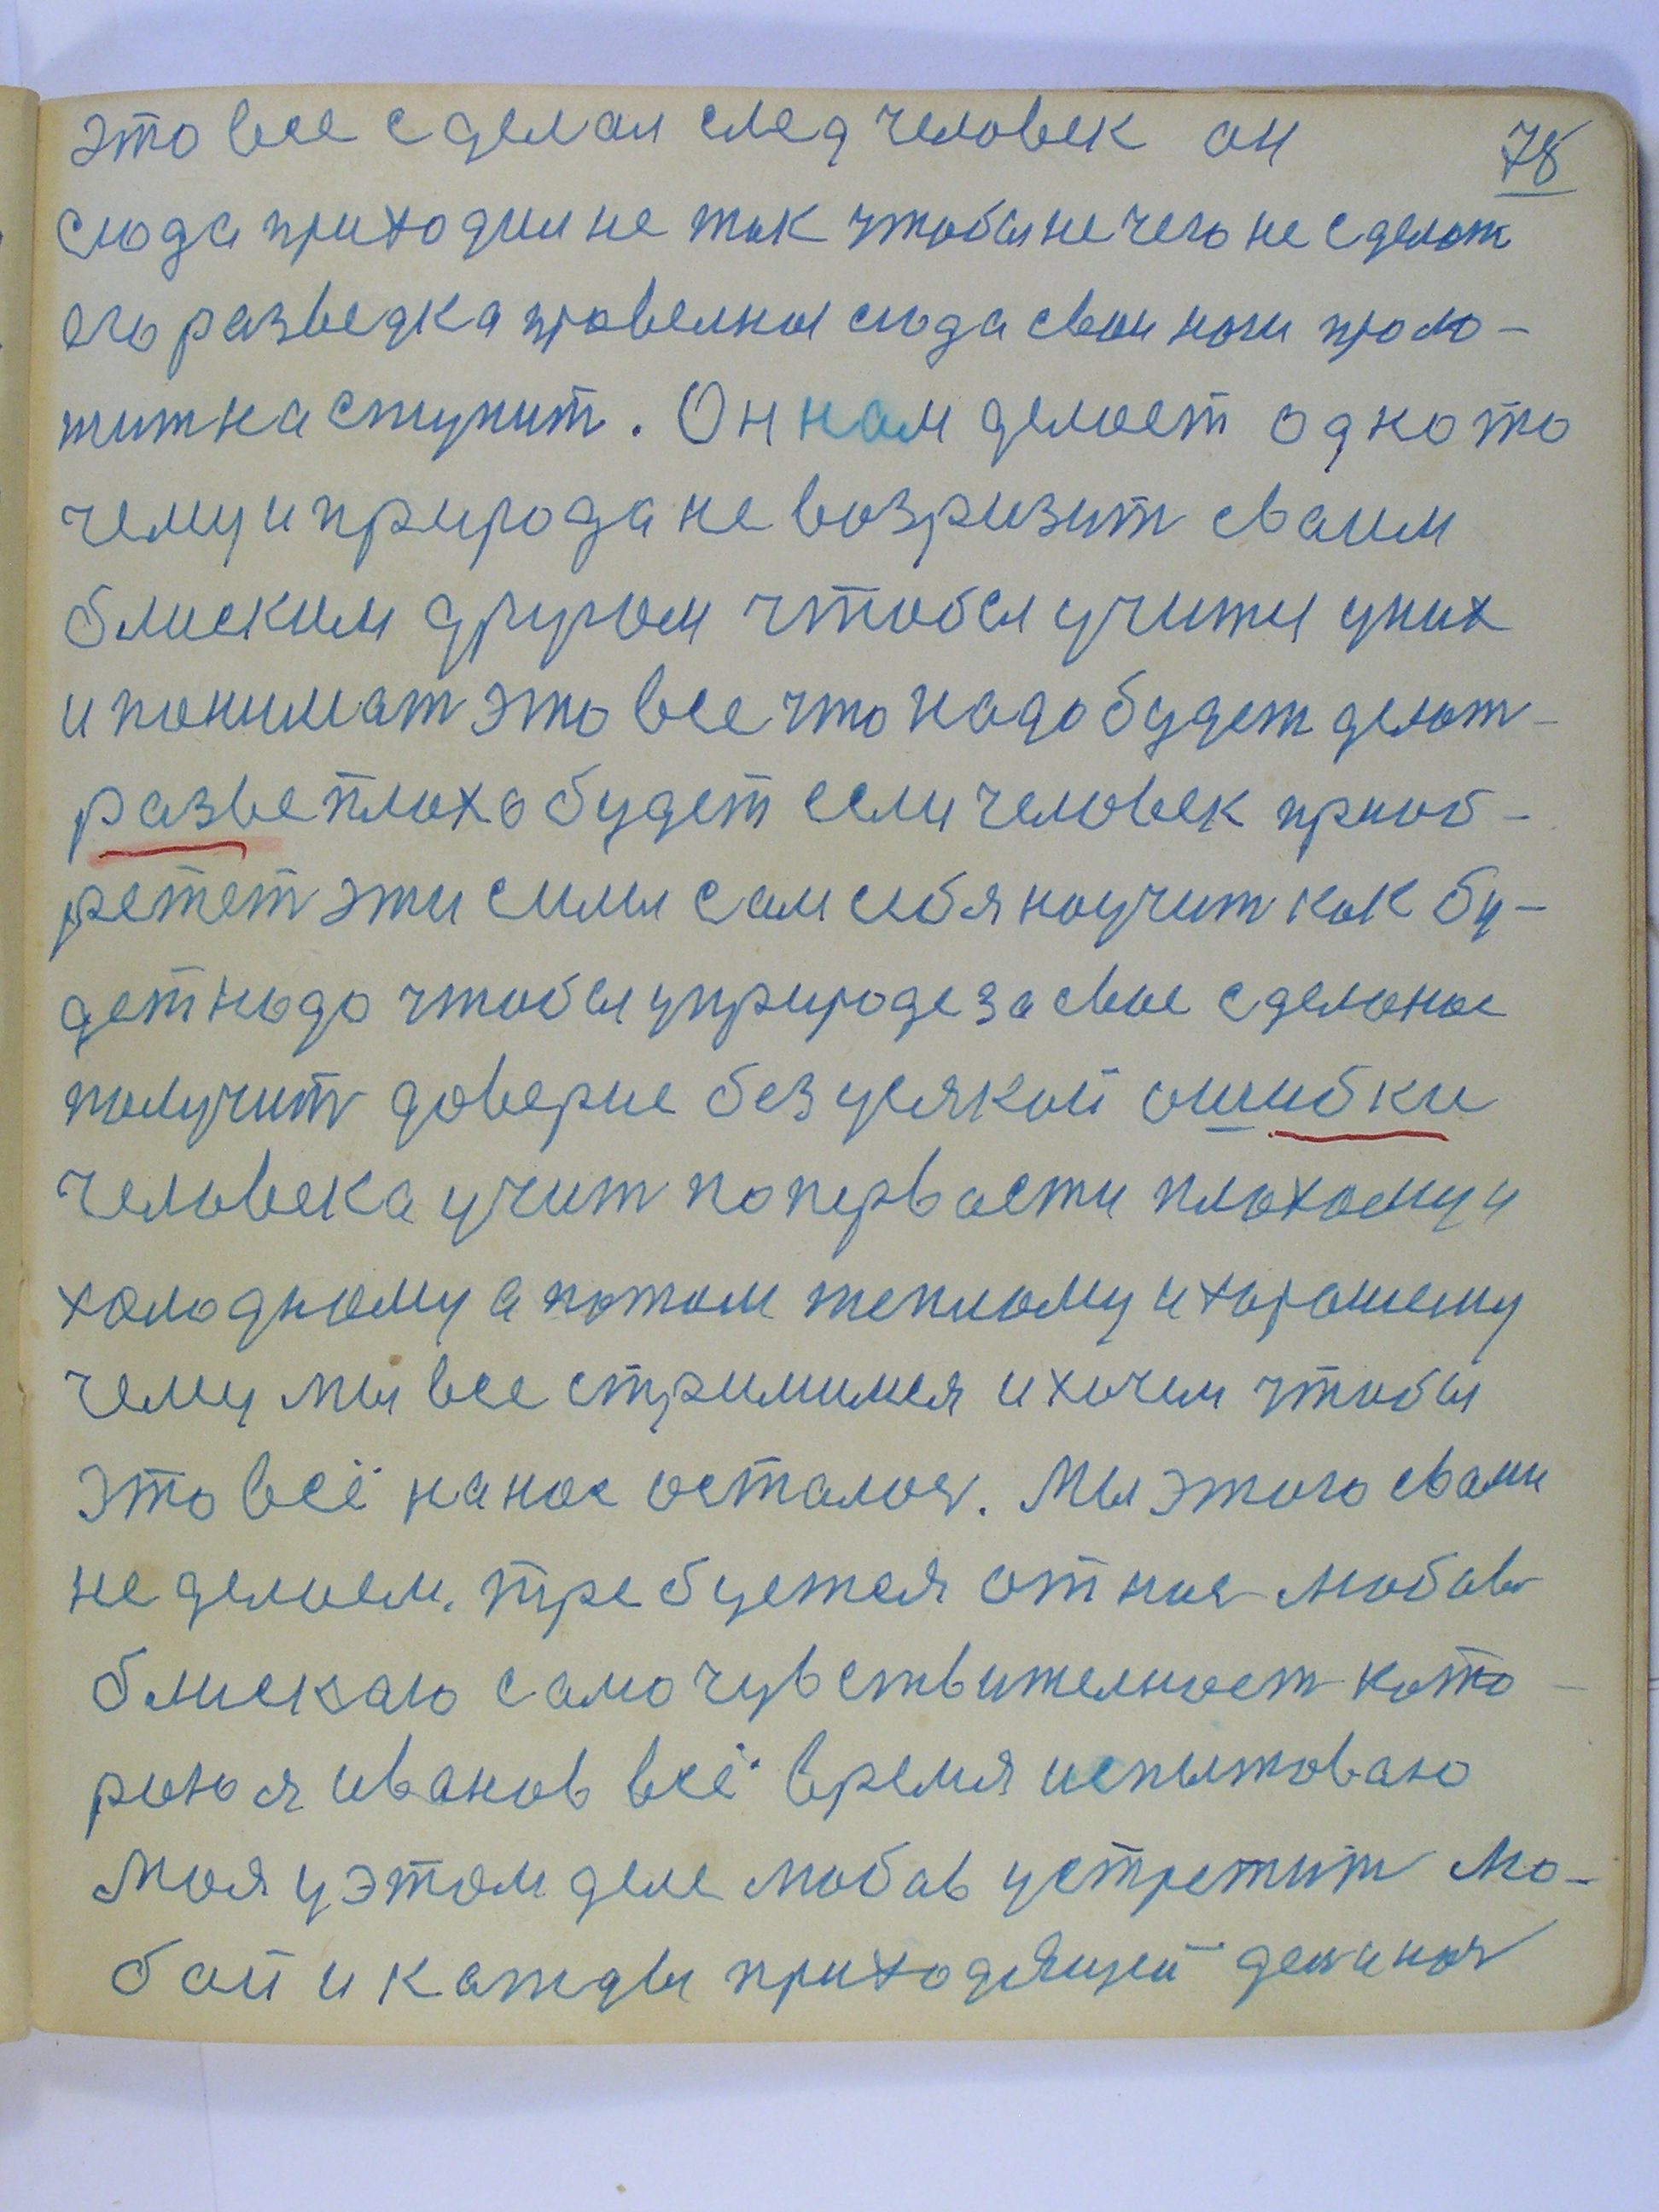 это все сделал след человек он 78
сюда приходил не так чтобы не чего не сделат
его разведка правелна сюда свои ноги проло-
жит наступит. Он нам делает одно то
чему и природа не возризит сваим
блиским другом чтобы учится у них
и понимат это все что надо будет делат
разве плохо будет если человек приоб-
ретет эти силы сам себя научит как бу-
дет надо чтобы у природе за свое сделаное
получит доверие без усякой ошибки
человека учит по первости плохому и
холодному а потом теплому и хорошему
чему мы все стримимся и хочем чтобы
это всё на нас осталос. Мы этого свами
не делаем. требуется от нас любов
блискаю самочувствителност кото-
рыю я иванов всё время испытоваю
Моя у этом деле любов устретит лю-
бой и кажды приходящей